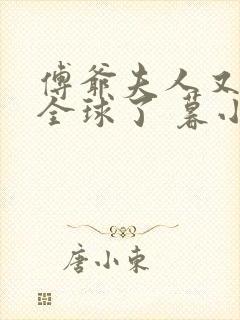 傅爷夫人又
全球了 暮小
唐小东